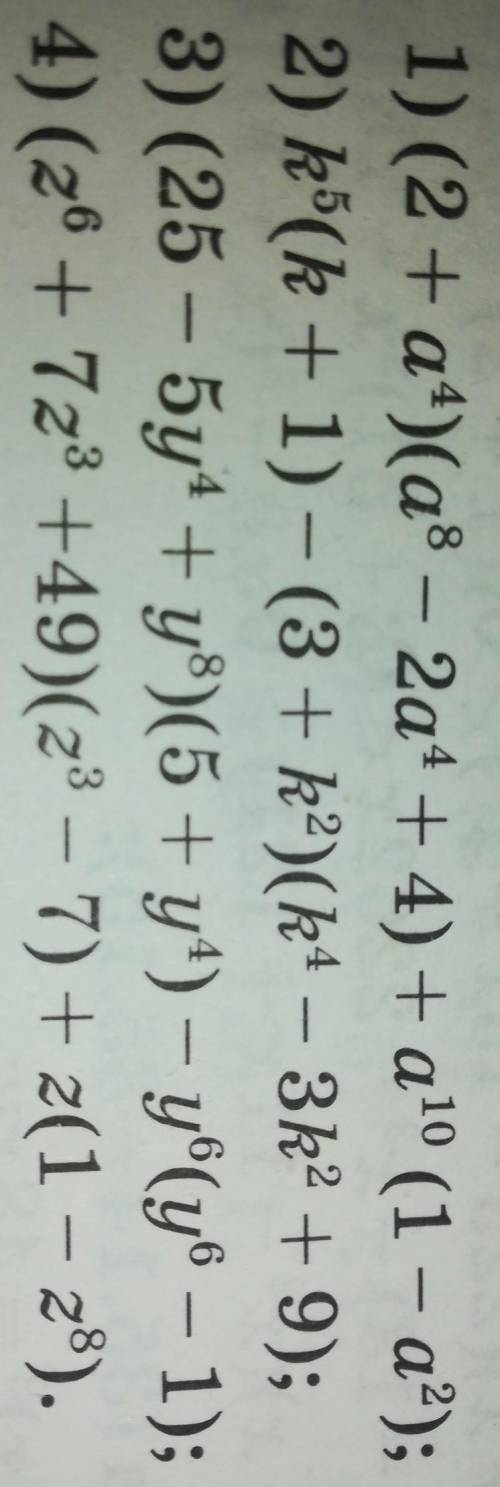 1) (2 + a⁴)(a⁸ − 2a⁴ + 4) + a¹⁰ (1 − a²);
2) k⁵(k + 1) − (3 + k²)(k⁴ − 3k² + 9);
3) (25 − 5y⁴ + y⁸)(5 + y⁴) − y⁶(y⁶ − 1);
4) (z⁶ + 7z³ +49)(z³ − 7) + z(1 − z⁸).